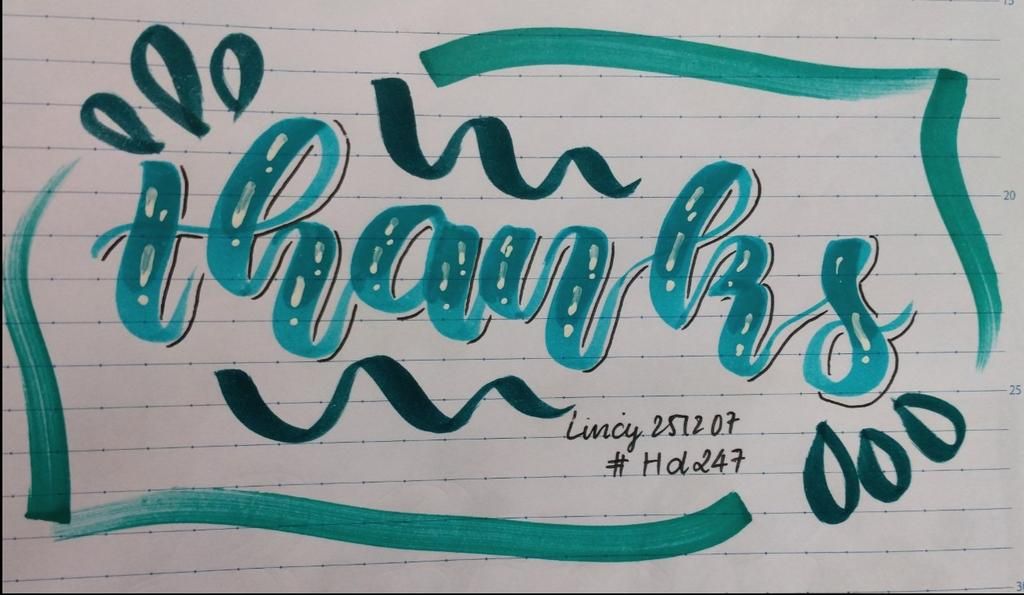 thanks
Lincy 251207
# Hd247
20
25